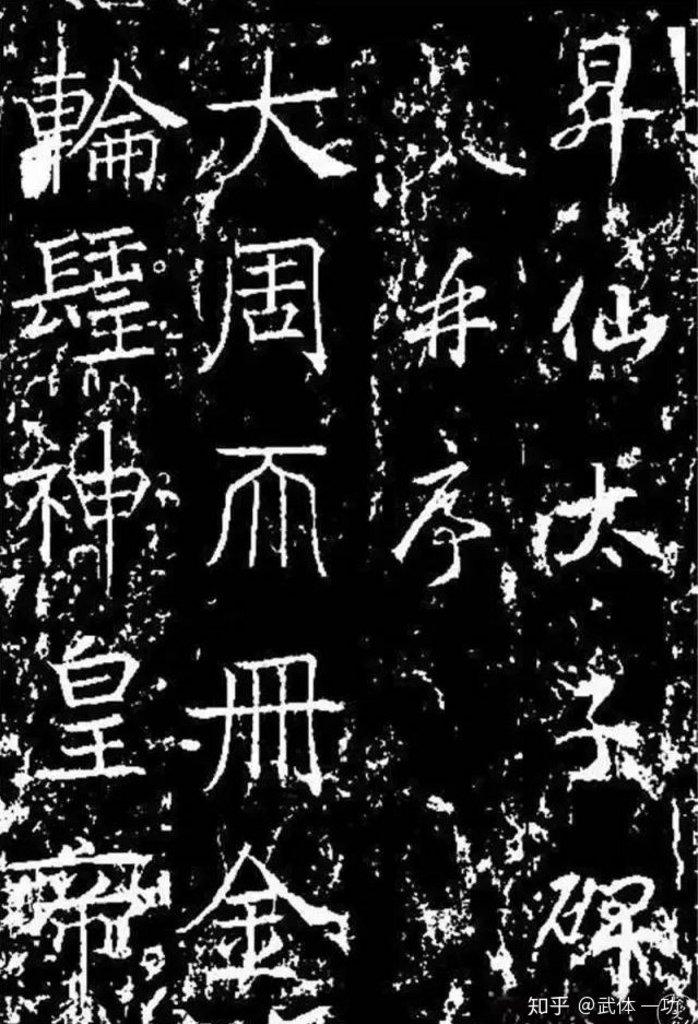 昇仙太子碑
并序
大周𠀑冊金
輪𨲢神皇帝
知乎 @武体一功